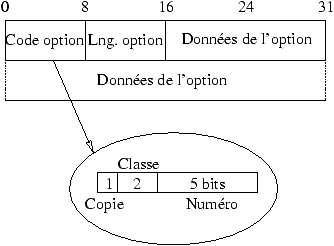 0 8 16 24 31
Code option Lng. option Données de l'option
Données de l'option
Classe
1 2 5 bits
Copie Numéro